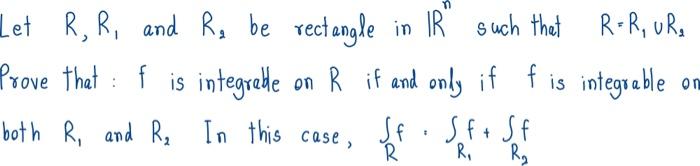 Let R, R₁ and R₂ be rectangle in ℝⁿ such that R = R₁ ∪ R₂
Prove that : f is integrable on R if and only if f is integrable on
both R₁ and R₂ In this case, ∫_R f = ∫_R₁ f + ∫_R₂ f